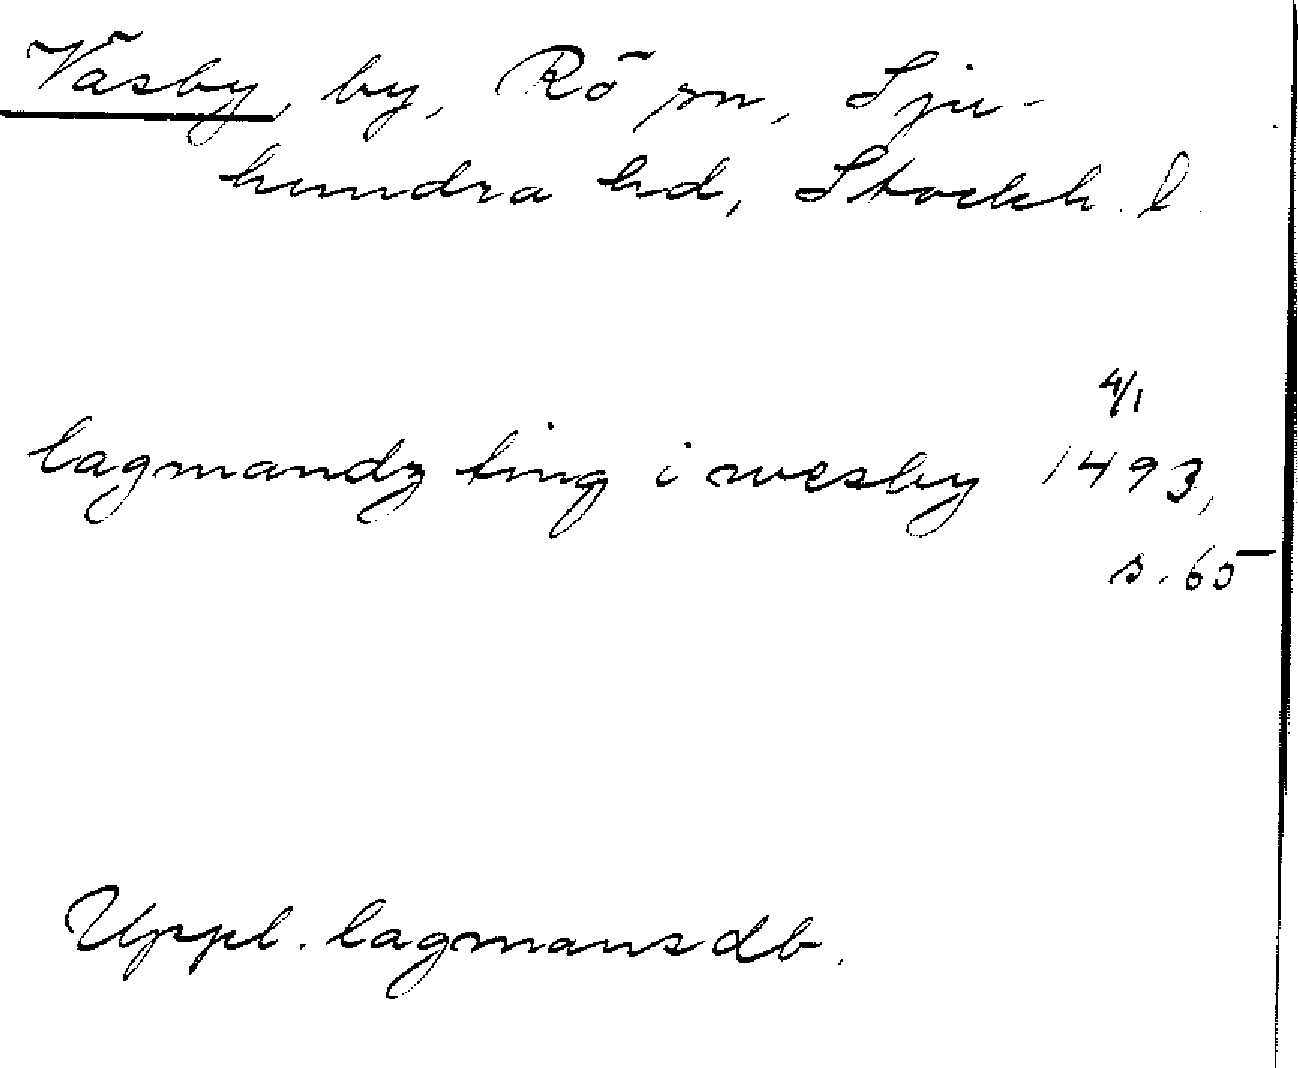 Väsby, by, Rö sn, Sju-
hundra hd, Stockh. l.
4/1
lagmandz ting i wesby 1493,
s. 65
Uppl. lagmansdb.